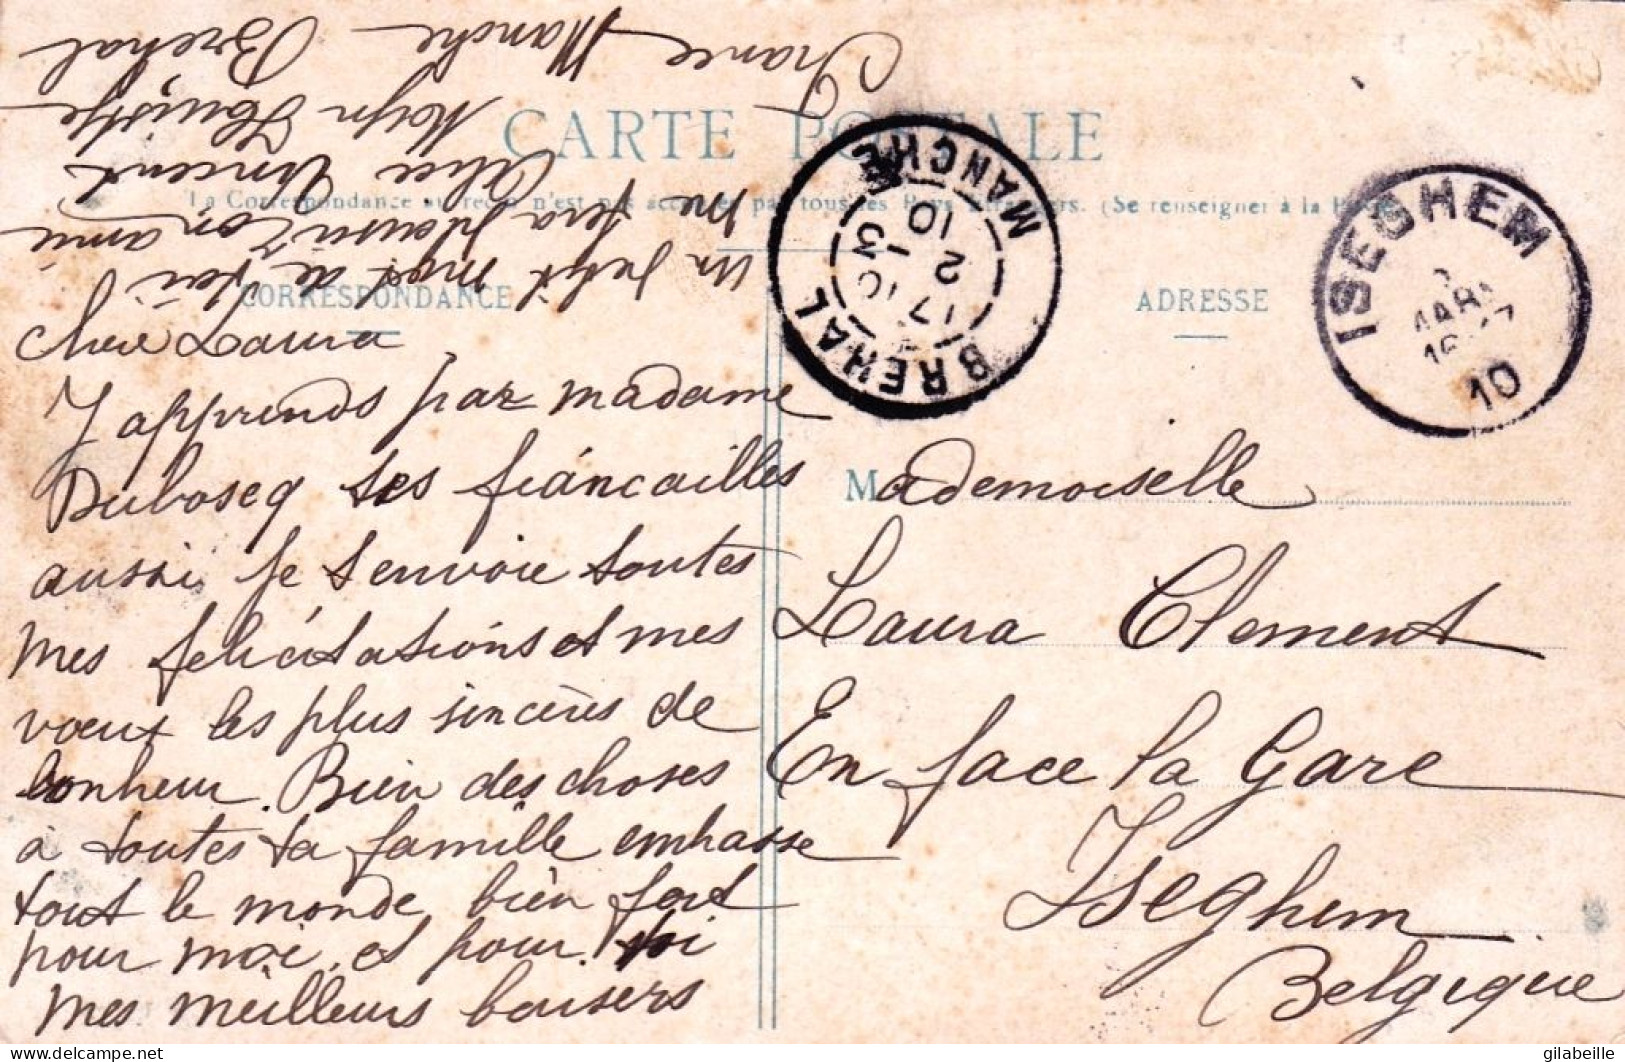 CARTE POSTALE
La Correspondance au recto n'est pas acceptée par tous les Pays Etrangers. (Se renseigner à la Poste)
CORRESPONDANCE
ADRESSE
chere Laura
J apprends par madame
Duboscq tes fiáncailles
aussi je t envoie toutes
mes felicitations et mes
vœux les plus sincères de
bonheur. Bien des choses
à toutes ta famille embrasse
tout le monde bien fort
pour moi et pour toi
mes meilleurs baisers
un petit mot de toi
me fera plaisir Ton amie
Alice Vincent
France Manche Brehal
Mademoiselle
Laura Clement
En face la Gare
Iseghem
Belgique
BREHAL MANCHE
17 10
2 -3
10
ISEGHEM
MARS
10
gilabeille